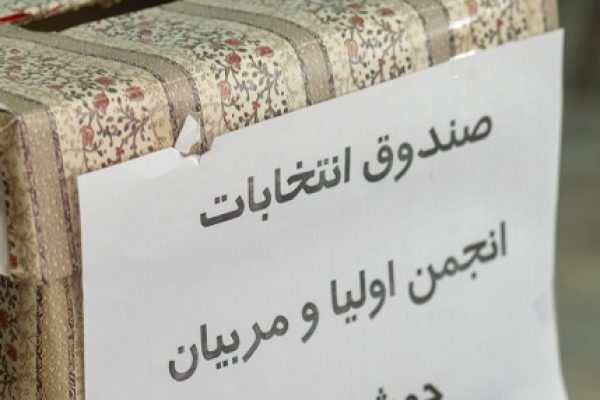 صندوق انتخابات
انجمن اولیا و مربیان